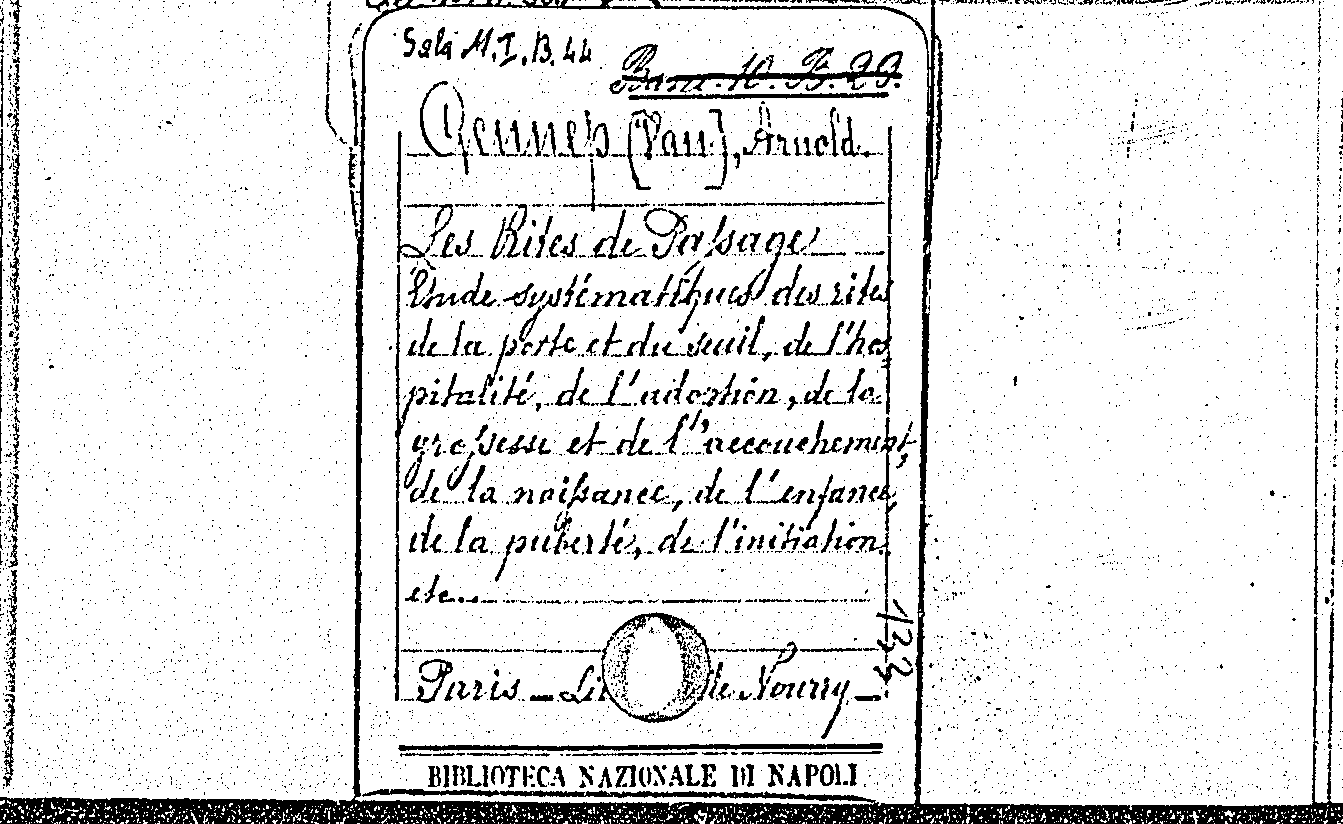 Sala M.I.B.44
Banc. 10. B. 29.
Gennep [Van], Arnold.
Les Rites de Passage
Etude systématiques des rites
de la porte et du seuil, de l'hos
pitalité, de l'adoption, de la
grossesse et de l'accouchement,
de la naissance, de l'enfance,
de la puberté, de l'initiation.
etc...
Paris _ Nourry _
BIBLIOTECA NAZIONALE DI NAPOLI